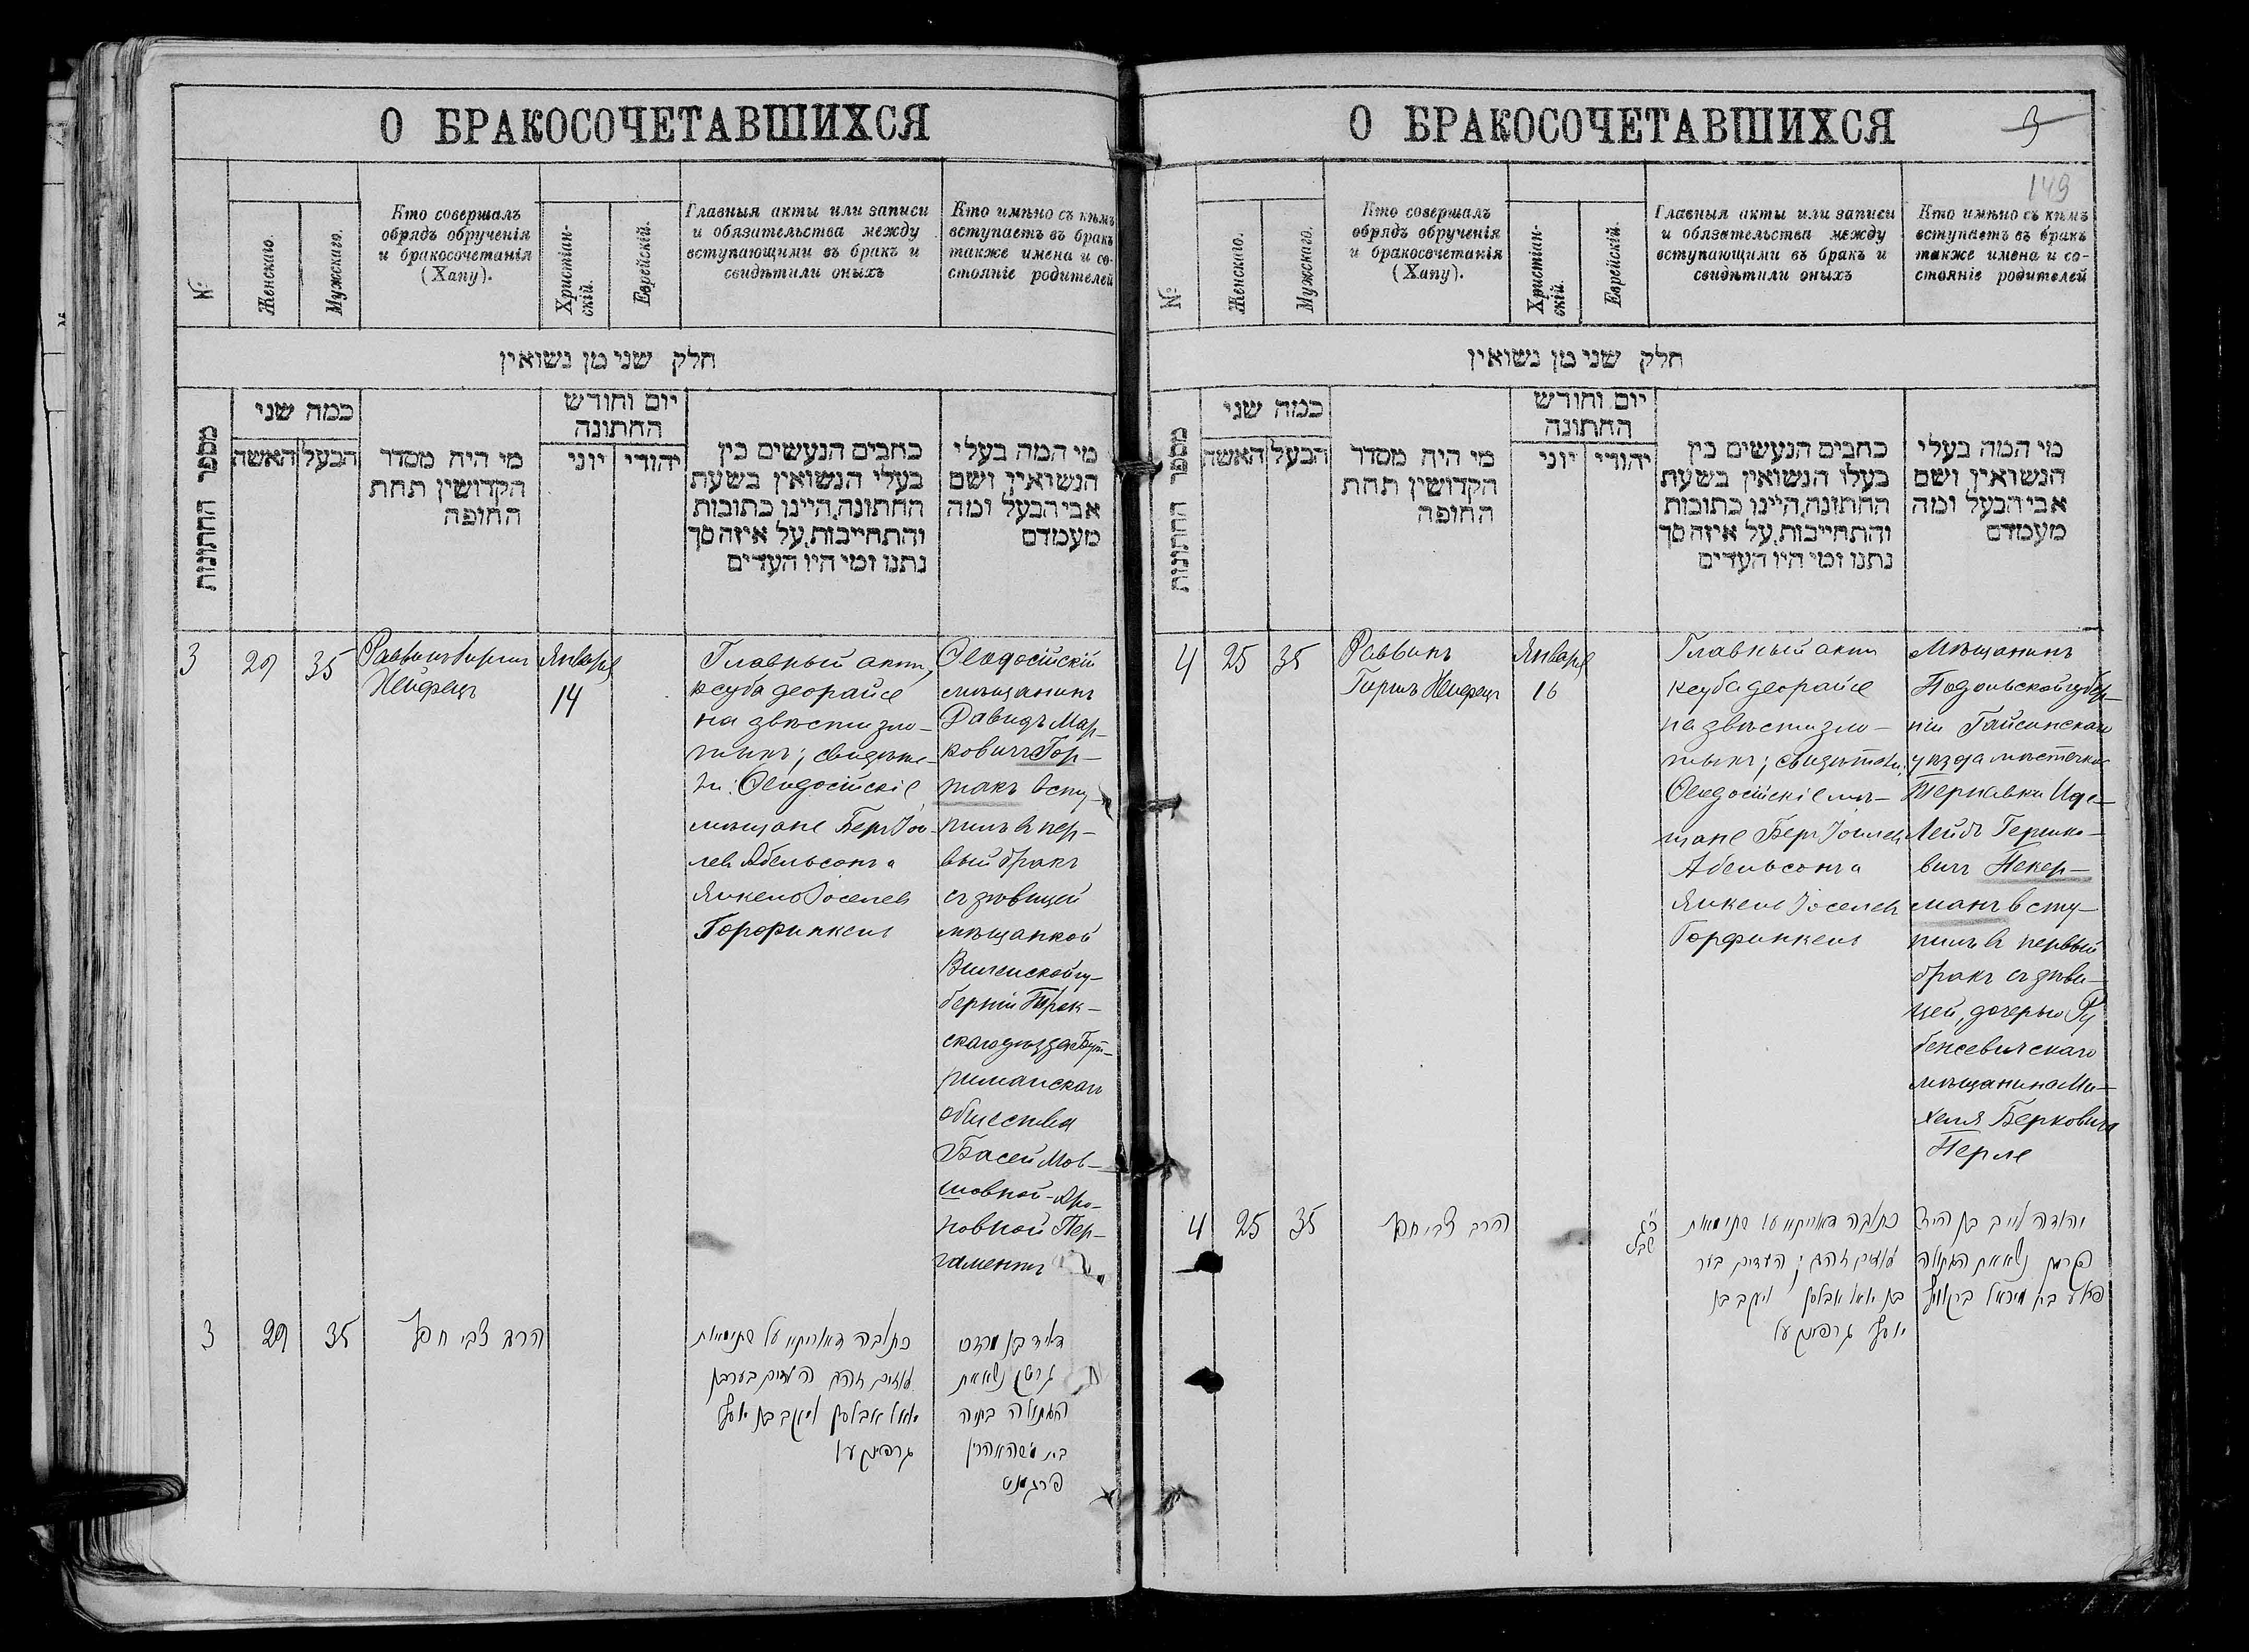 О БРАКОСОЧЕТАВШИХСЯ
№
Женскаго.
Мужскаго.
Кто совершалъ
обрядъ обрученія
и бракосочетанія
(Хапу).
Христіан-
скій.
Еврейскій.
Главныя акты или записи
и обязательства между
вступающими въ бракъ и
свидѣтили оныхъ
Кто имѣно съ кѣмъ
вступаетъ въ бракъ
также имена и со-
стояніе родителей
חלק שני מן נשואין
מספר החתונות
כמה שני
הבעל
האשה
מי היה מסדר
הקדושין תחת
החופה
יום וחודש
החתונה
יהודי
יוני
כתבים הנעשים בין
בעלי הנשואין בשעת
החתונה, היינו כתובות
והתחייבות, על איזה סך
נתנו ומי היו העדים
מי המה בעלי
הנשואין ושם
אבי הבעל ומה
מעמדם
3
29
35
Раввинъ Гиршъ
Хейфецъ
Января
14
Главный актъ,
ксуба деорайсе
на двѣсти зло-
тыхъ; свидѣте-
ли: Ѳеодосійскіе
мѣщане Беръ Іои-
левъ Абельсонъ и
Янкель Іоселевъ
Горфинкель
Ѳеодосійскій
мѣщанинъ
Давидъ Мар-
ковичъ Гор-
вступ-
пилъ въ пер-
вый бракъ
съ дѣвицей
мѣщанкой
Виленской гу-
берніи Трок-
скаго уѣзда Бут-
риманскаго
общества
Басей Мов-
шовной-Аро-
новной Пер-
гаментъ
3
29
35
הרב צבי חפץ
כתובה דאורייתא על שתי מאות
זהובים העדים בער בן
יואל אבלסון ויעקב בן יוסף
גרפינקעל
דוד בן מרדכי
נשא את
הבתולה בתיה
בת משה אהרן
פרגמנט
О БРАКОСОЧЕТАВШИХСЯ
9
149
№
Женскаго.
Мужскаго.
Кто совершалъ
обрядъ обрученія
и бракосочетанія
(Хапу).
Христіан-
скій.
Еврейскій.
Главныя акты или записи
и обязательства между
вступающими въ бракъ и
свидѣтили оныхъ
Кто имѣно съ кѣмъ
вступаетъ въ бракъ
также имена и со-
стояніе родителей
חלק שני מן נשואין
מספר החתונות
כמה שני
הבעל
האשה
מי היה מסדר
הקדושין תחת
החופה
יום וחודש
החתונה
יהודי
יוני
כתבים הנעשים בין
בעלי הנשואין בשעת
החתונה, היינו כתובות
והתחייבות, על איזה סך
נתנו ומי היו העדים
מי המה בעלי
הנשואין ושם
אבי הבעל ומה
מעמדם
4
25
35
Раввинъ
Гиршъ Хейфецъ
Января
16
Главный актъ
ксуба деорайсе
на двѣсти зло-
тыхъ; свидѣтели:
Ѳеодосійскіе мѣ-
щане Беръ Іоилевъ
Абельсонъ и
Янкель Іоселевъ
Горфинкель
Мѣщанинъ
Подольской губер-
ніи Гайсинскаго
уѣзда мѣстечка
Терновки Иде-
Лейбъ Гершко-
вичъ Пекер-
манъ всту-
пилъ въ первый
бракъ съ дѣви-
цей, дочерью Ру
бежевичскаго
мѣщанина Ми-
хеля Берковича
Перле
4
25
35
הרב צבי חפץ
שבט
כתובה דאורייתא על שתי מאות
זהובים העדים בער
בן יואל אבלסון ויעקב בן
יוסף גרפינקעל
יהודה לייב בן הירש
פקרמן נשא את הבתולה